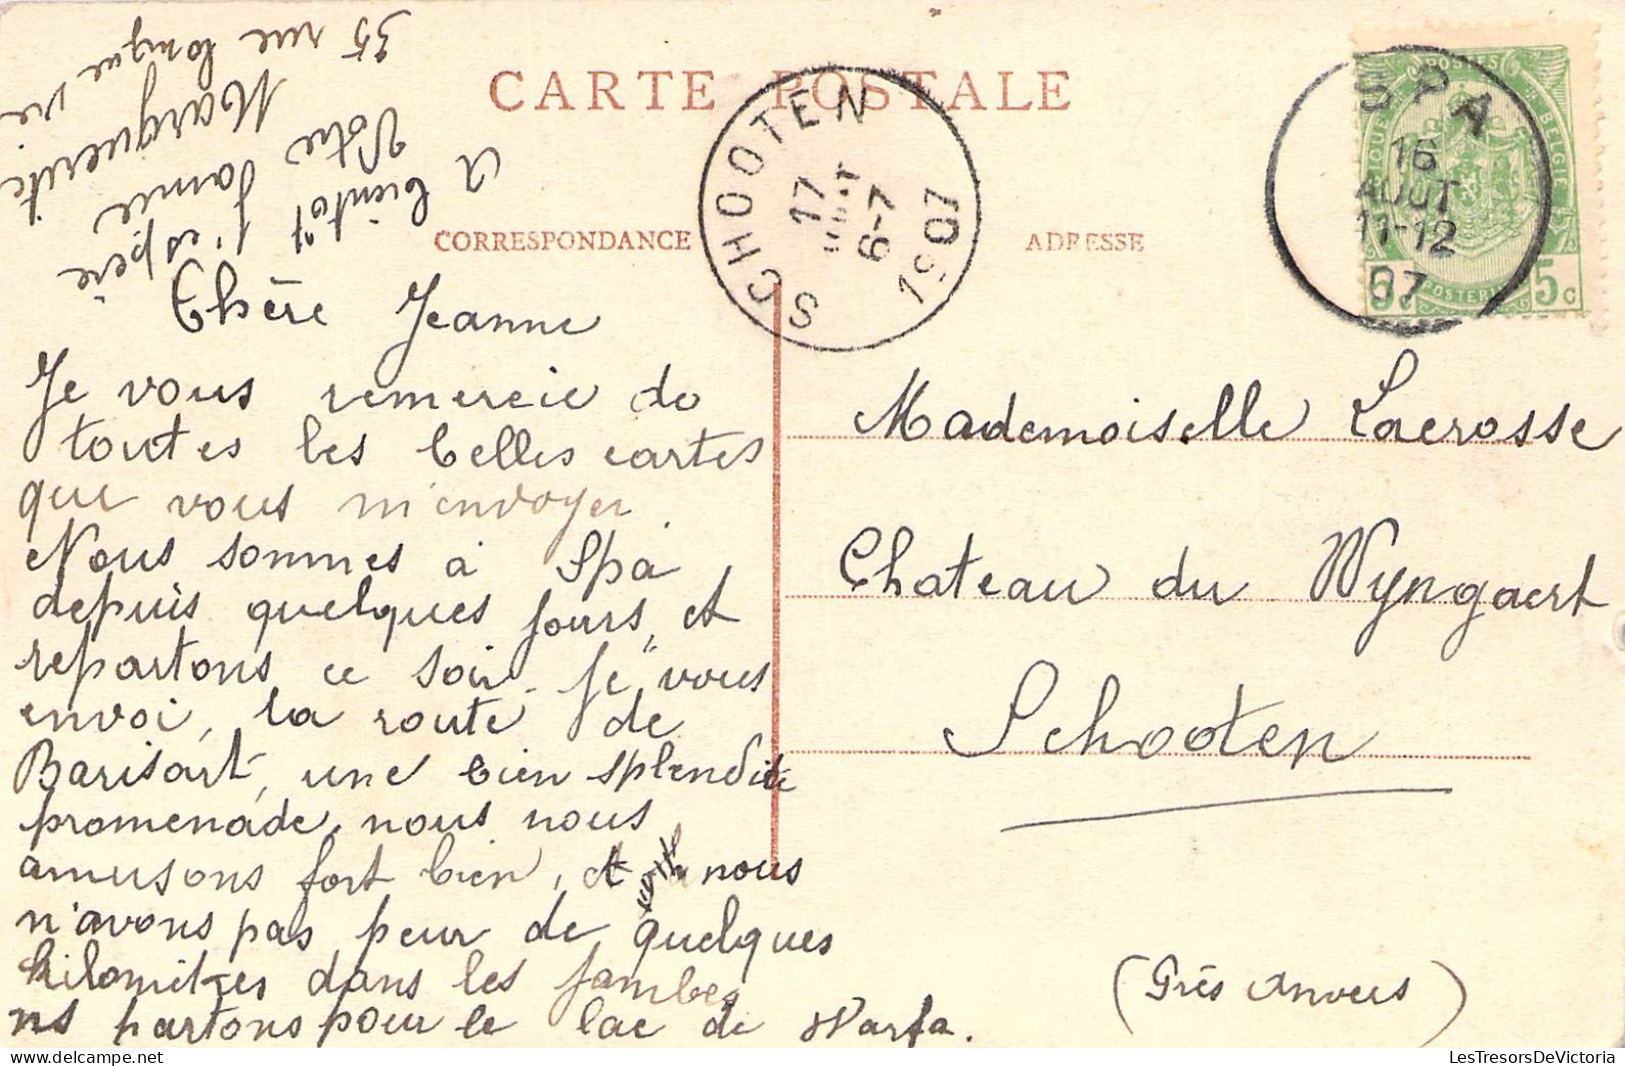 CARTE POSTALE
CORRESPONDANCE
ADRESSE
SCHOOTEN
17
6-7
1907
SPA
16
AOUT
11-12
07
POSTES
BELGIQUE BELGIE
POSTERIJEN
5c
Chère Jeanne
Je vous remercie de
toutes les belles cartes
que vous m'envoyer.
Nous sommes à Spa
depuis quelques jours, et
repartons ce soir. Je vous
envoi, la route de
Barisart, une bien splendide
promenade, nous nous
amusons fort bien, et nous
n'avons pas peur de quelques
kilomètres dans les jambes
ns partons pour le lac de Warfa.
A bientôt j'espère
Votre amie
Marguerite
35 rue longue vie
Mademoiselle Lacrosse
Chateau du Wyngaert
Schooten
(Près Anvers)
LesTresorsDeVictoria